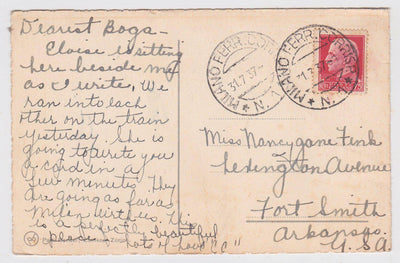 Dearest Boga-
Eloise is sitting
here beside me
as I write, We
ran into each
other on the train
yesterday. She is
going to write you
a card in a
few minutes. They
are going as far as
Milan with us. This
is a perfectly beautiful
place. Lots of love "C"
MILANO FERR. CORRISP.
31.7.37-
V.N.
MILANO FERR. CORRISP.
V.N.
Miss Nancygane Fink
Lexington Avenue
Fort Smith
Arkansas.
U.S.A.